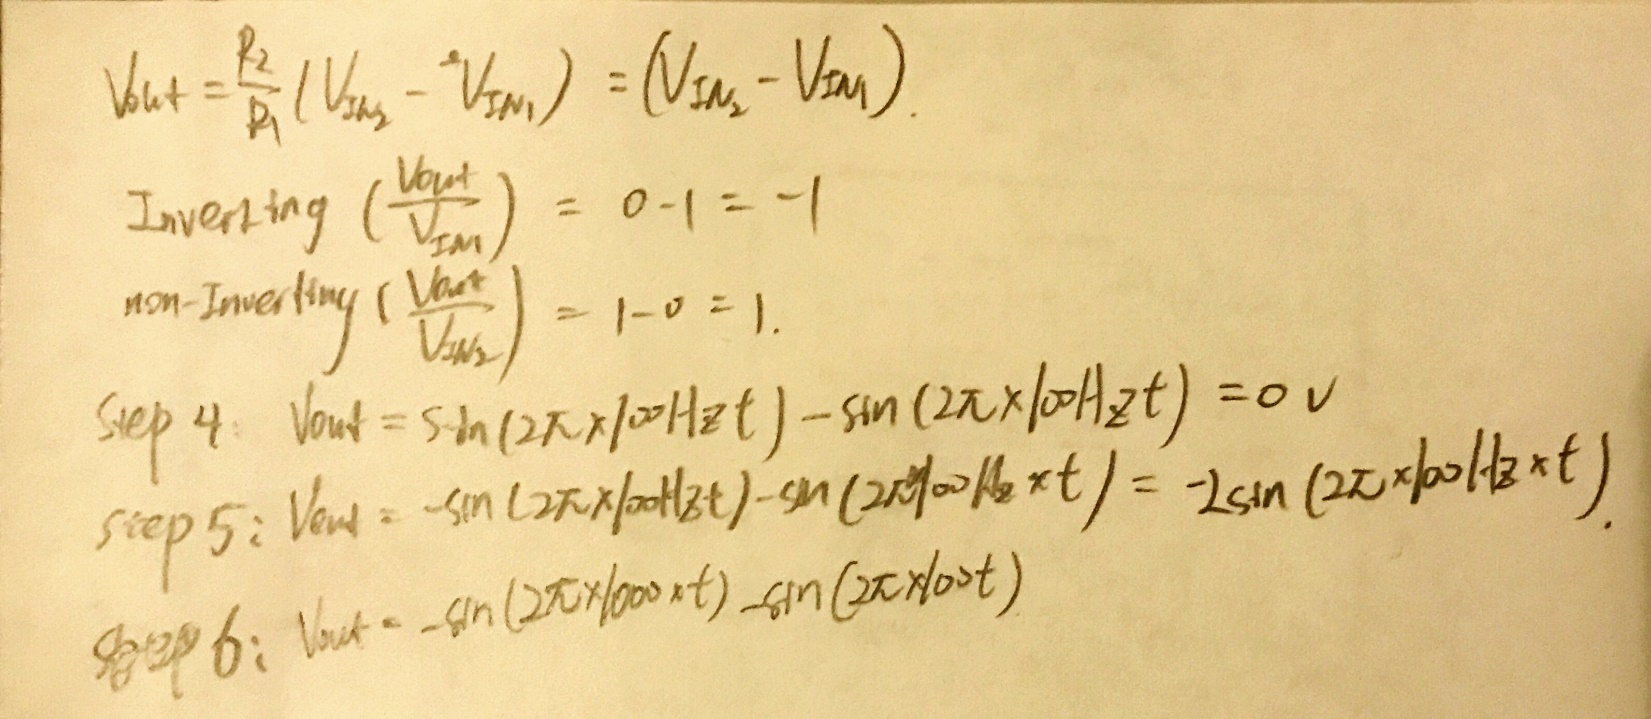 Vout = R2/R1 (VIN2 - VIN1) = (VIN2 - VIN1).
Inverting (Vout/VIN1) = 0-1 = -1
non-Inverting (Vout/VIN2) = 1-0 = 1.
Step 4: Vout = sin(2π×100Hz t) - sin(2π×100Hz t) = 0 V
Step 5: Vout = -sin(2π×100Hz t) - sin(2π×100Hz × t) = -2sin(2π×100Hz × t).
Step 6: Vout = -sin(2π×1000×t) - sin(2π×100t)